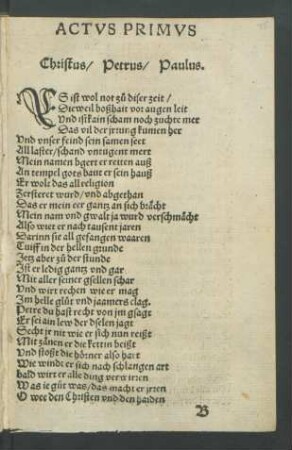 ACTVS PRIMVS
Christus/ Petrus/ Paulus.
ES ist wol not zů diser zeit/
Dieweil boßhait vor augen leit
Vnd ist kain scham noch zuchte mer
Das vil der jrrung kumen her
Vnd vnser feind sein samen seet
All laster/schand vntugent meet
Mein namen bgert er reitten auß
An tempel gots baut er sein hauß
Er wolt das all religion
Zerstöret wurd/vnd abgethan
Das er mein eer gantz an sich brächt
Mein nam vnd gwalt ja wurd verschmächt
Also wiet er nach tausent jaren
Darinn sie all gefangen waaren
Tuiff in der hellen grunde
Jetz aber zů der stunde
Ist er ledig gantz vnd gar
Mit aller seiner gsellen schar
Vnd wirt rechen wie er mag
Im helle glüt vnd jaamers clag.
Petre du hast recht von jm gsagt
Er sei ain lew der dselen jagt
Secht jr nit wie er sich nun reißt
Mit zänen er die kettin beißt
Vnd stoßt die hörner also hart
Wie windt er sich nach schlangen art
bald wirt er alle ding verwirren
Was ie gůt was/das macht er jrren
O wee den Christen vnd den haiden
B